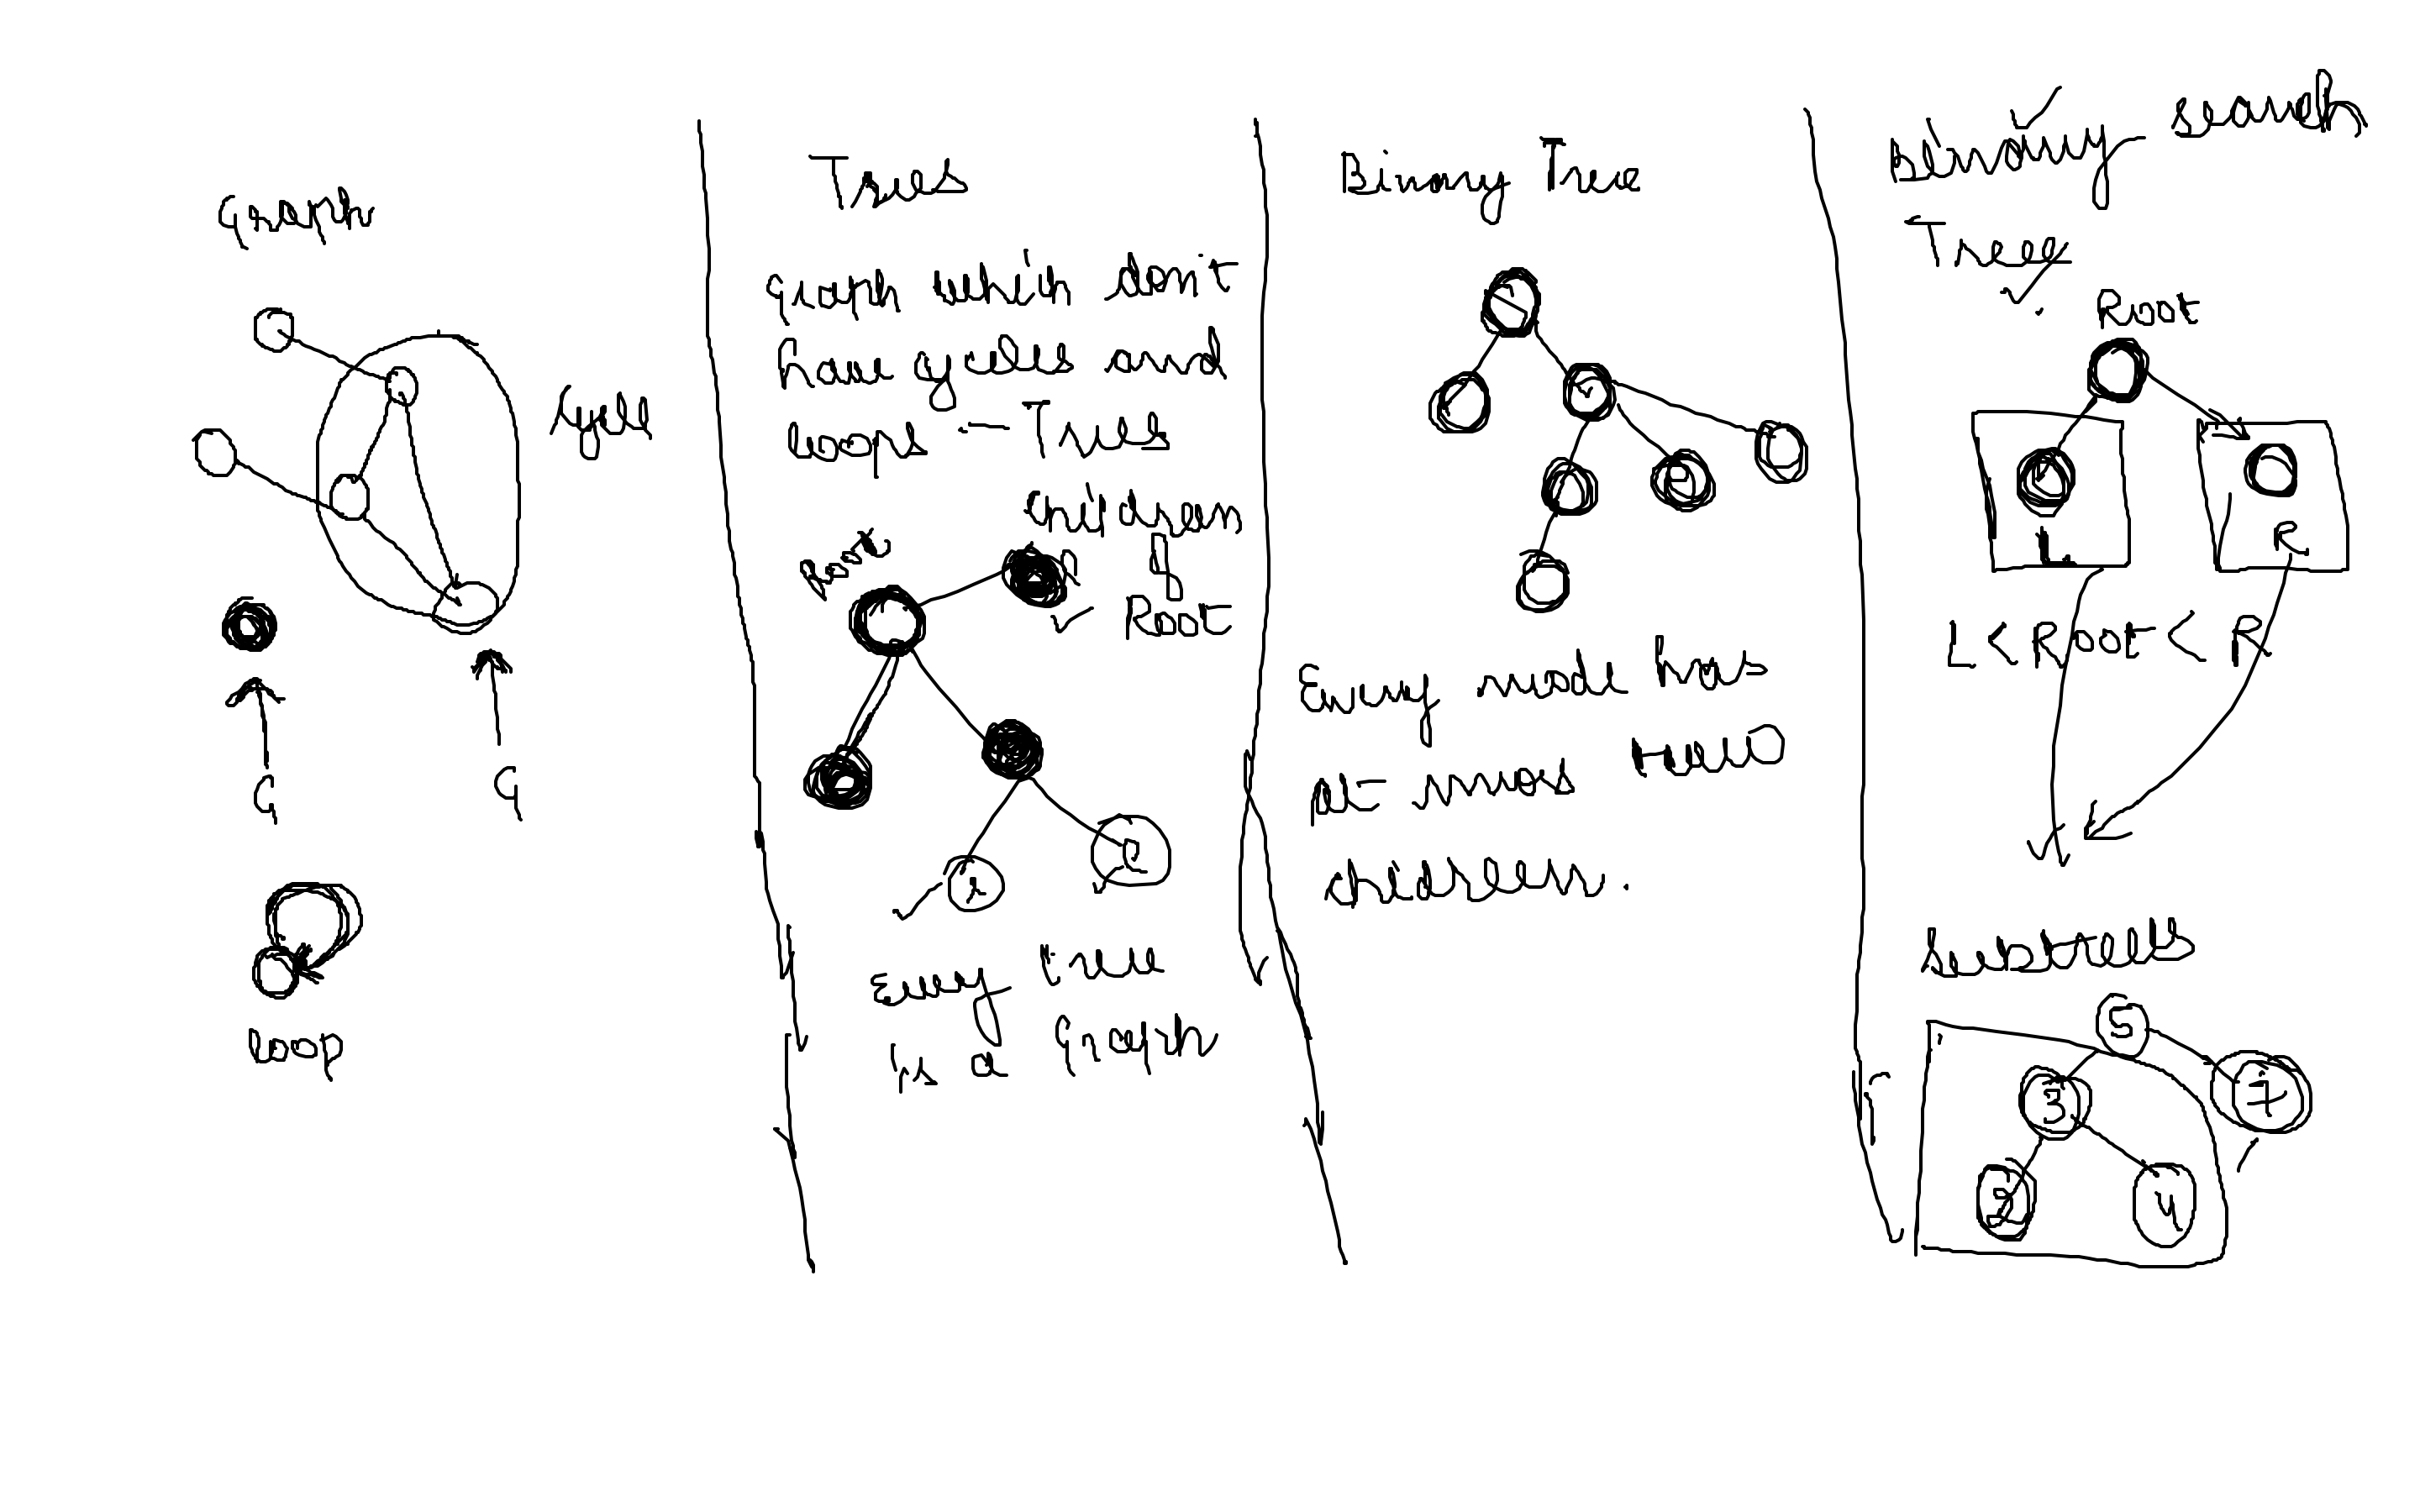 Graph
cycle
G
G
loop
Trees
graph which don't
have cycles and
loops - Trees
children
of
Root
Root
1
2
Every tree
is a Graph
Binary Tree
Every node has
at most two
children.
Binary search
Tree
Root
L
R
L < Root < R
subtrees
5
3
7
2
4